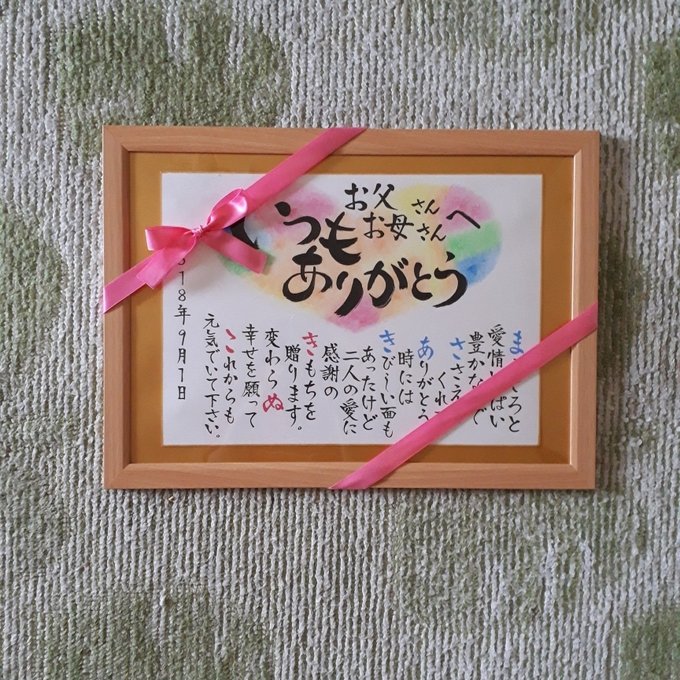 お父さん
お母さんへ
いつも
ありがとう
愛情いっぱい
豊かな
ささえ
くれ
ありがとう
時には
きびしい面も
あったけど
二人の愛に
感謝の
きもちを
贈ります。
変わらぬ
幸せを願って
これからも
元気でいて下さい。
18年9月1日